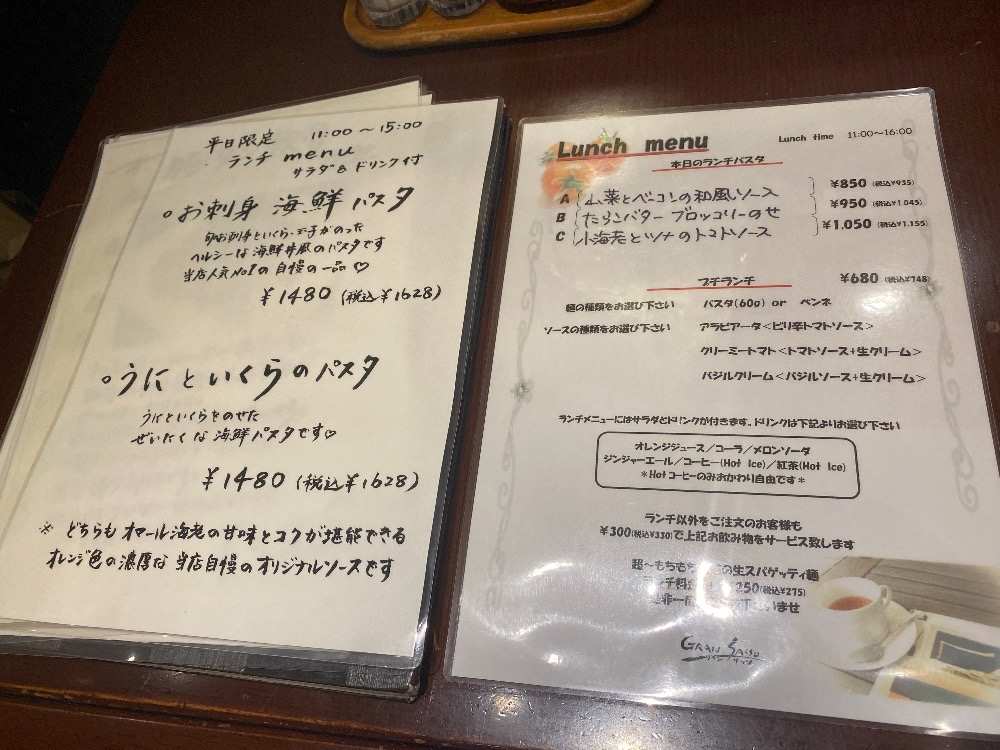 平日限定 11:00～15:00
ランチ menu
サラダ& ドリンク付
○お刺身 海鮮パスタ
ヘルシーな海鮮丼風のパスタです
当店人気No1の自慢の一品♡
¥1480 (税込¥1628)
○うにといくらのパスタ
うにといくらをのせた
ぜいたくな海鮮パスタです♡
¥1480 (税込¥1628)
※ どちらもオマール海老の甘味とコクが堪能できる
オレンジ色の濃厚な当店自慢のオリジナルソースです
Lunch menu
Lunch time 11:00～16:00
本日のランチパスタ
A 山菜とベーコンの和風ソース ¥850(税込¥935)
B たらこバター ブロッコリーのせ ¥950(税込¥1.045)
C 小海老とツナのトマトソース ¥1.050(税込¥1.155)
プチランチ ¥680(税込¥748)
麺の種類をお選び下さい パスタ(60g) or ペンネ
ソースの種類をお選び下さい アラビアータ<ピリ辛トマトソース>
クリーミートマト<トマトソース+生クリーム>
バジルクリーム<バジルソース+生クリーム>
ランチメニューにはサラダとドリンクが付きます。ドリンクは下記よりお選び下さい
オレンジジュース/コーラ/メロンソーダ
ジンジャーエール/コーヒー(Hot Ice)/紅茶(Hot Ice)
*Hotコーヒーのみおかわり自由です*
ランチ以外をご注文のお客様も
¥300(税込¥330)で上記お飲み物をサービス致します
超～もちもち の生スパゲッティ麺
ランチ料 250(税込¥275)
是非一 いませ